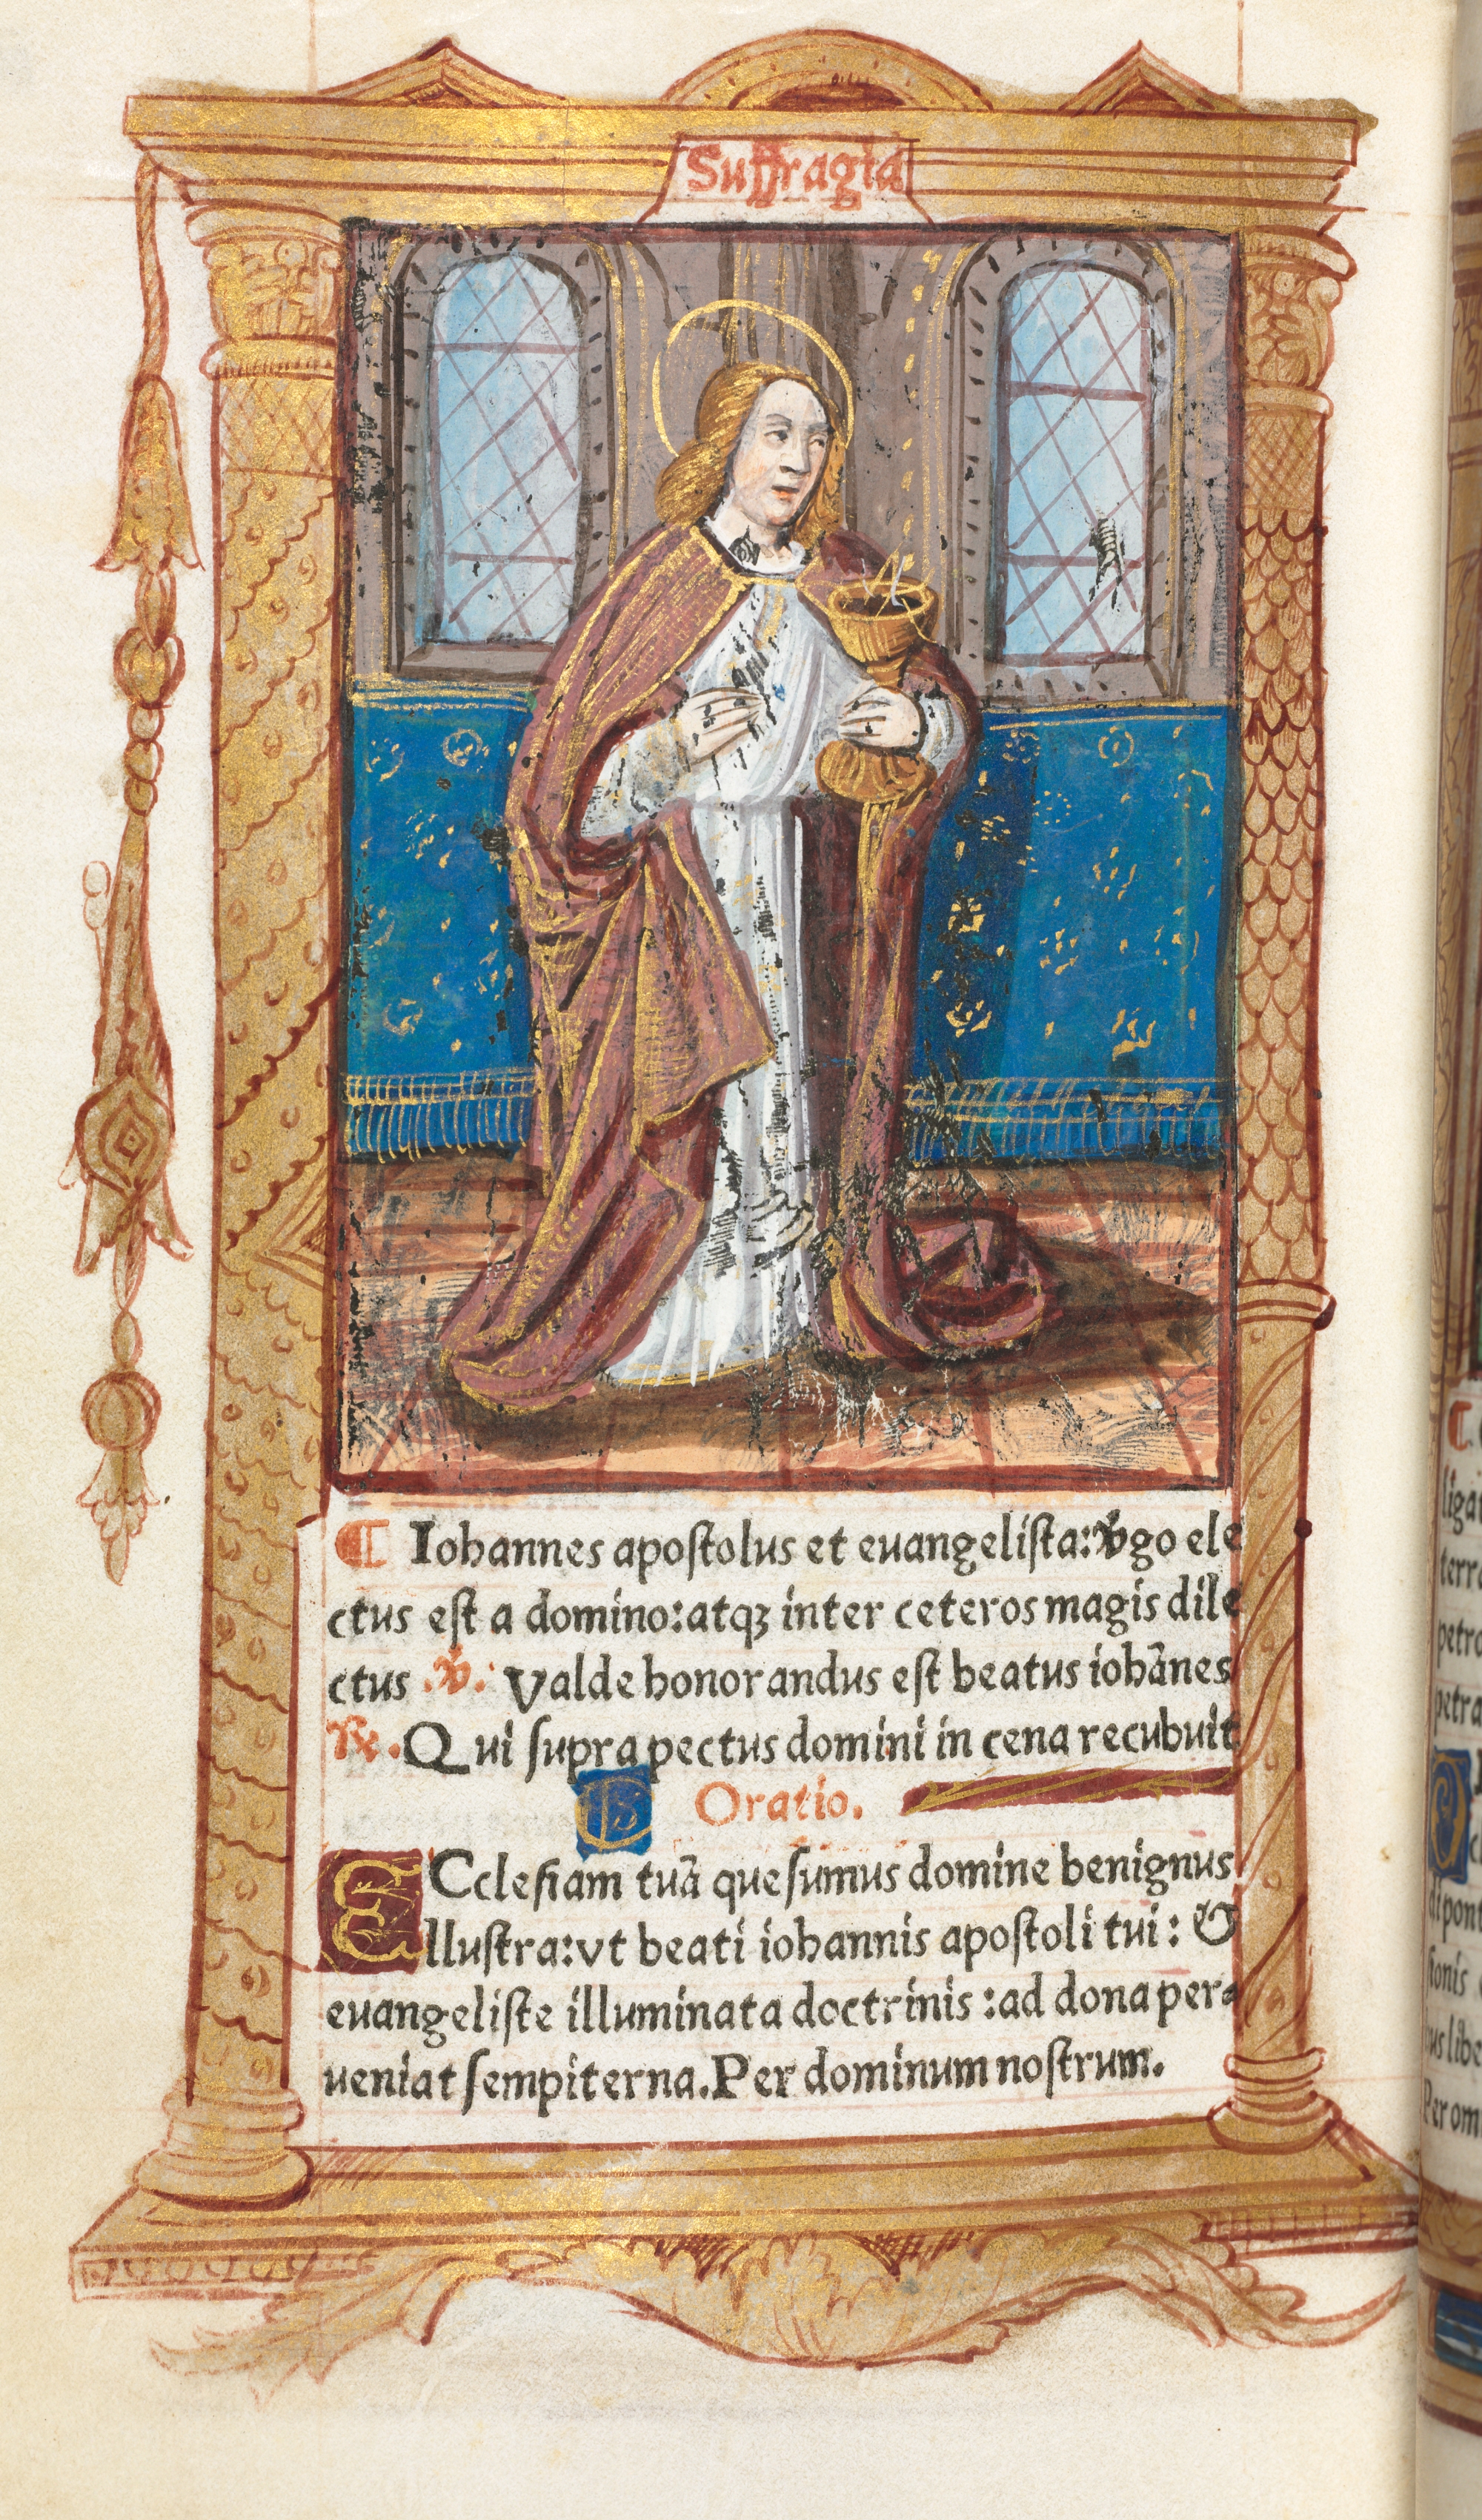 Suffragia
¶ Iohannes apostolus et euangelista: v̾go ele
ctus est a domino: atqꝫ inter ceteros magis dile
ctus .℣. Valde honorandus est beatus iohānes
℟. Qui supra pectus domini in cena recubuit
Oratio.
ECclesiam tuā quesumus domine benignus
illustra: vt beati iohannis apostoli tui: &
euangeliste illuminata doctrinis: ad dona per
ueniat sempiterna. Per dominum nostrum.